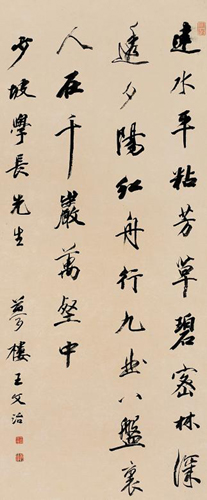 遠水平粘芳草碧密林深
透夕陽紅舟行九曲八盤裏
人在千巖萬壑中
少坡學長先生 夢樓王文治